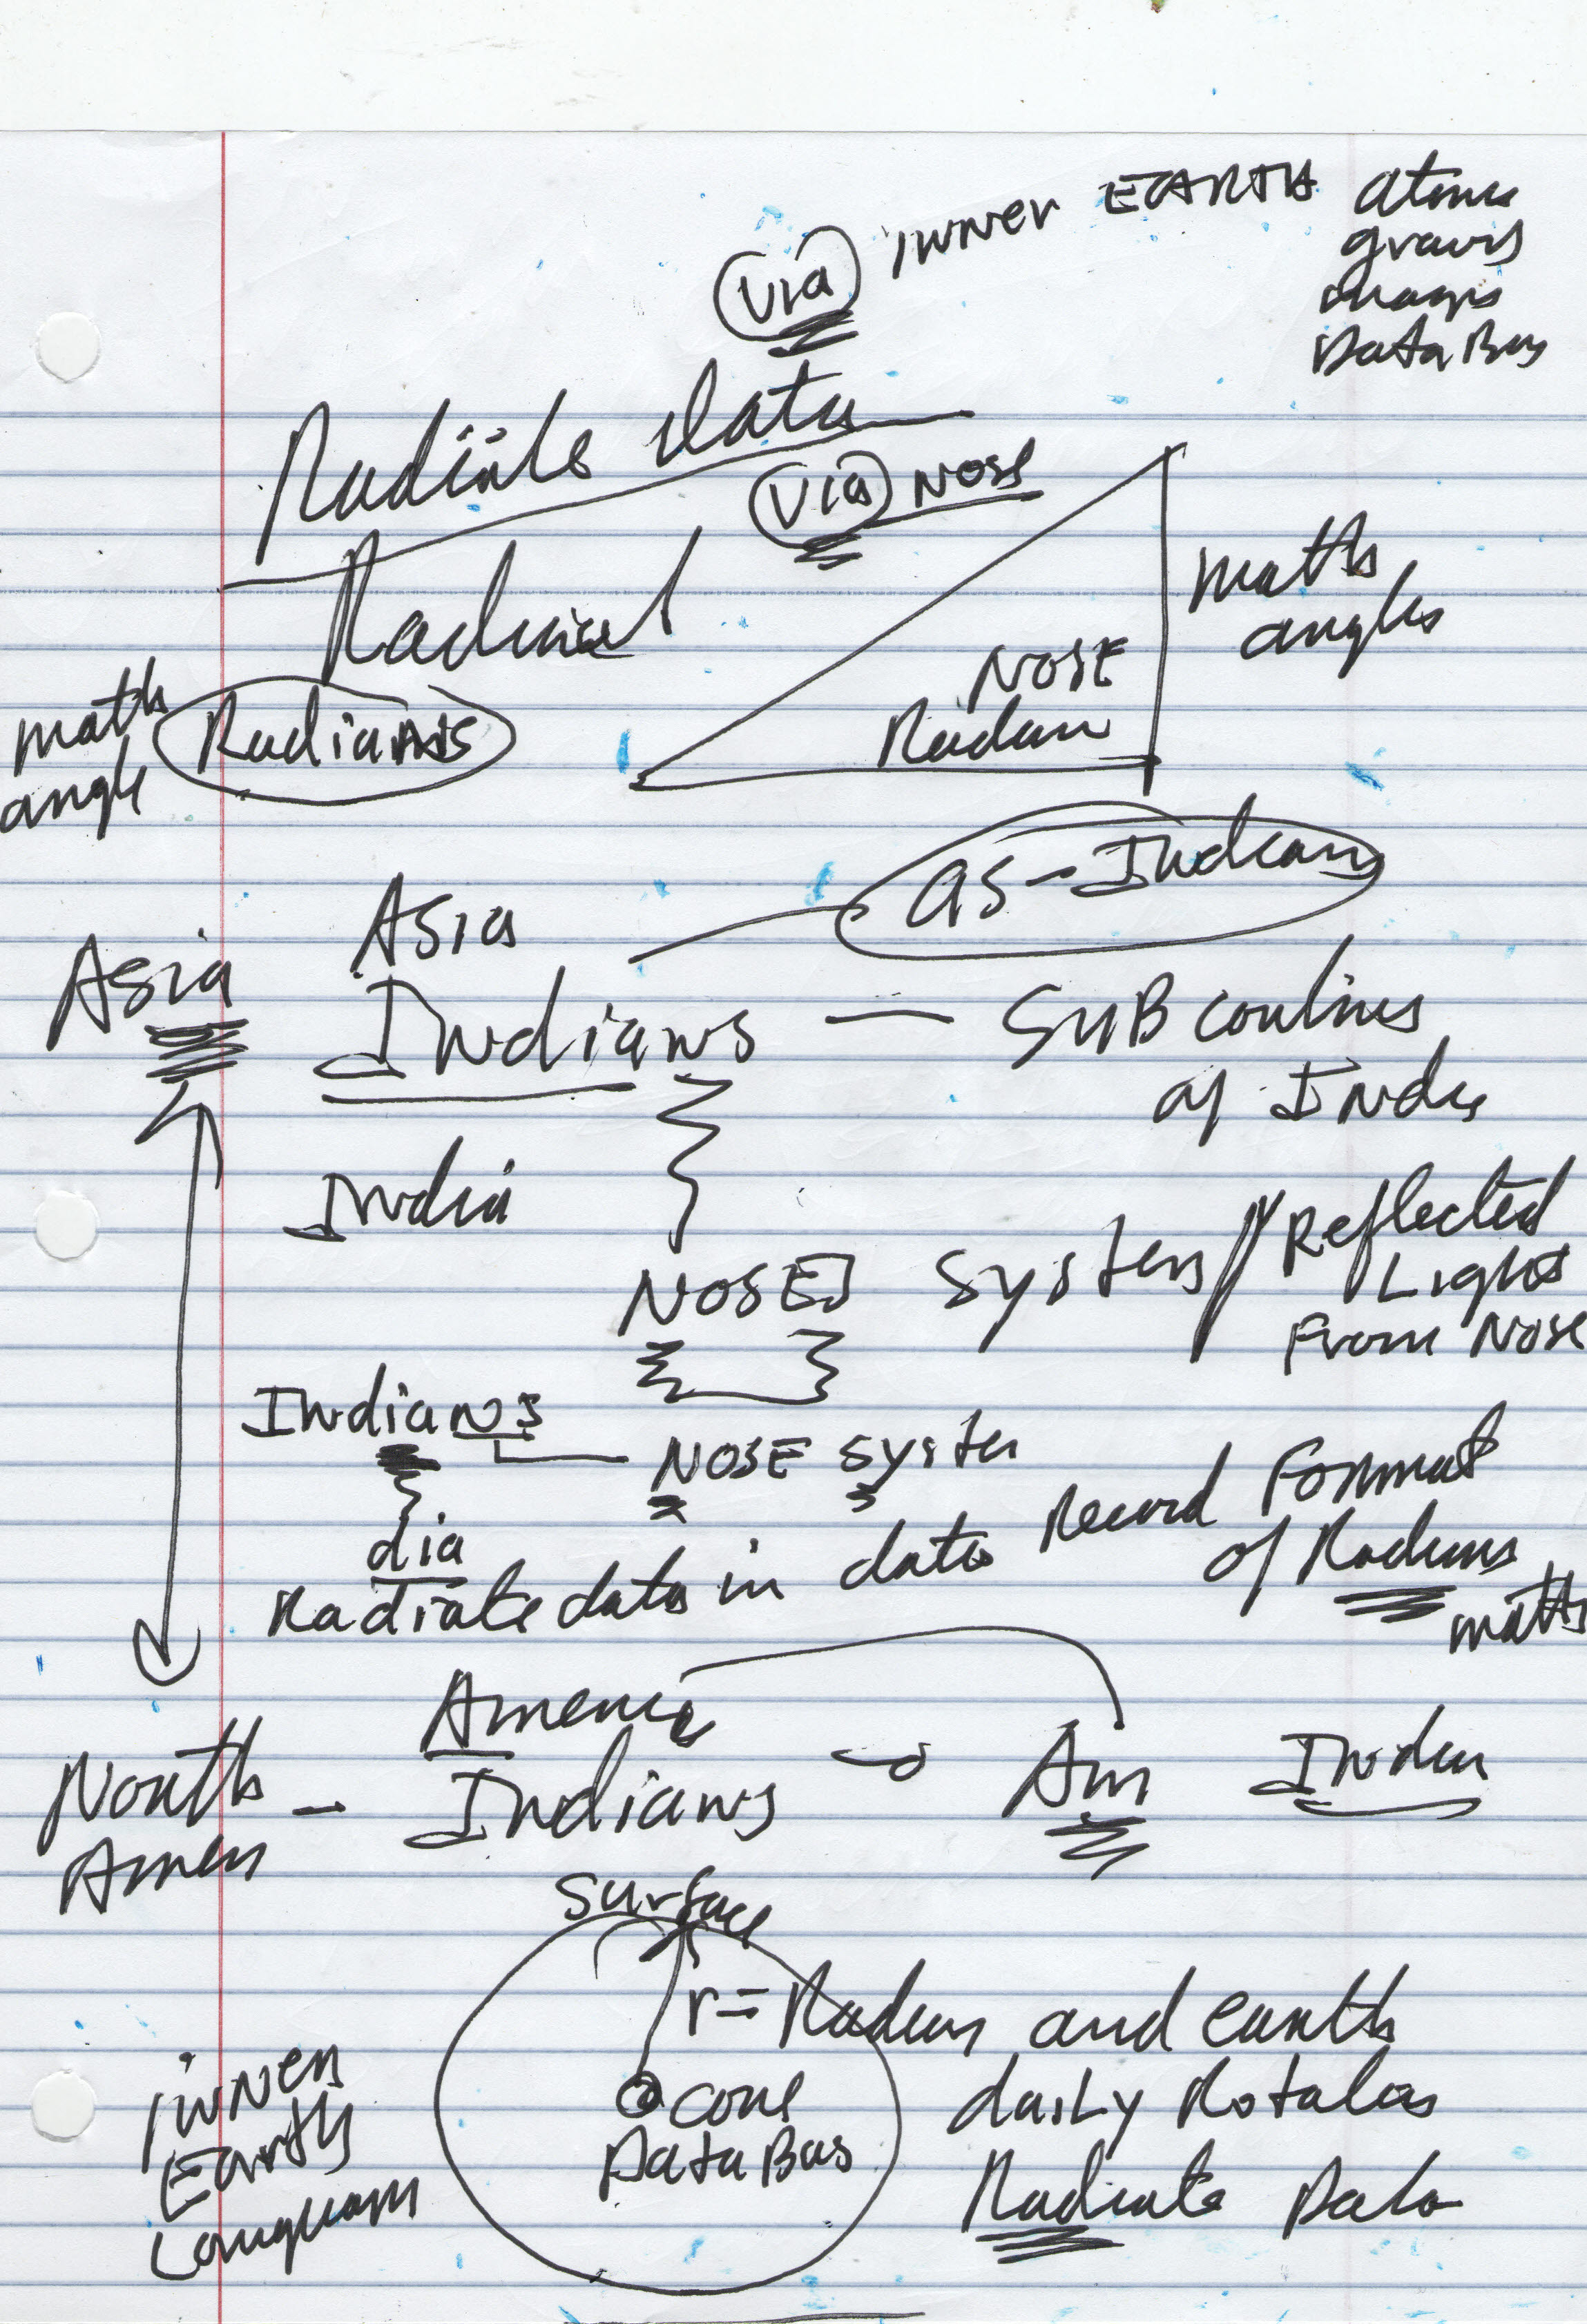 Via INNER EARTH
Data Bus
Radiate data
Via Nose
Radial
math
angles
NOSE
math
angle
Radians
as-Indian
Asia
Asia
Indians — SUB
of India
India
NOSE System // Reflected
Light
From Nose
Indians
NOSE System
dia
Radiate data in data Record Format
of Radians
math
North
America
Indians
Am Indian
Surface
r = Radius and earth
daily Rotates
Radiate Data
core
Data Bus
INNER
Earth